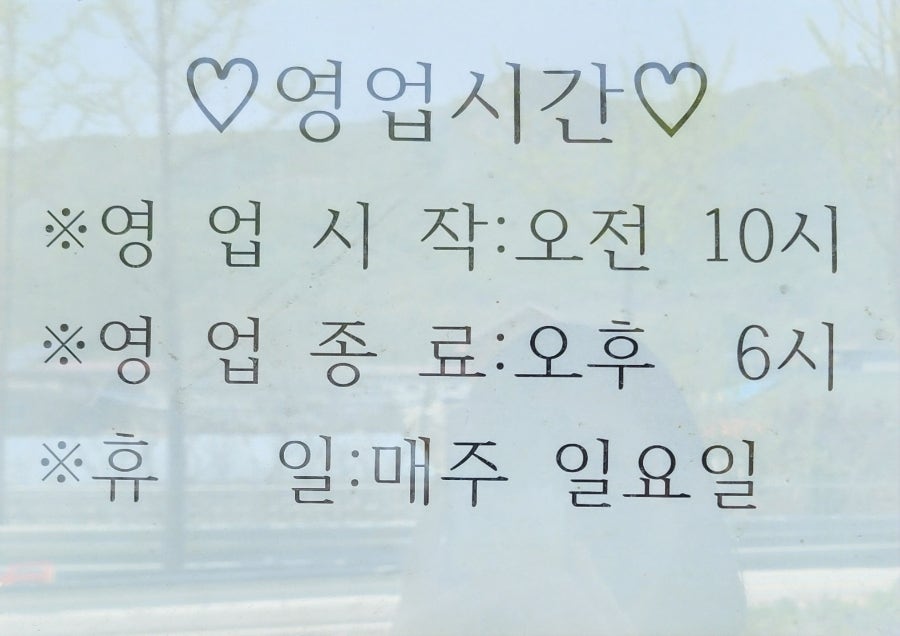 ♡영업시간♡
※영 업 시 작:오전 10시
※영 업 종 료:오후 6시
※휴 일:매주 일요일